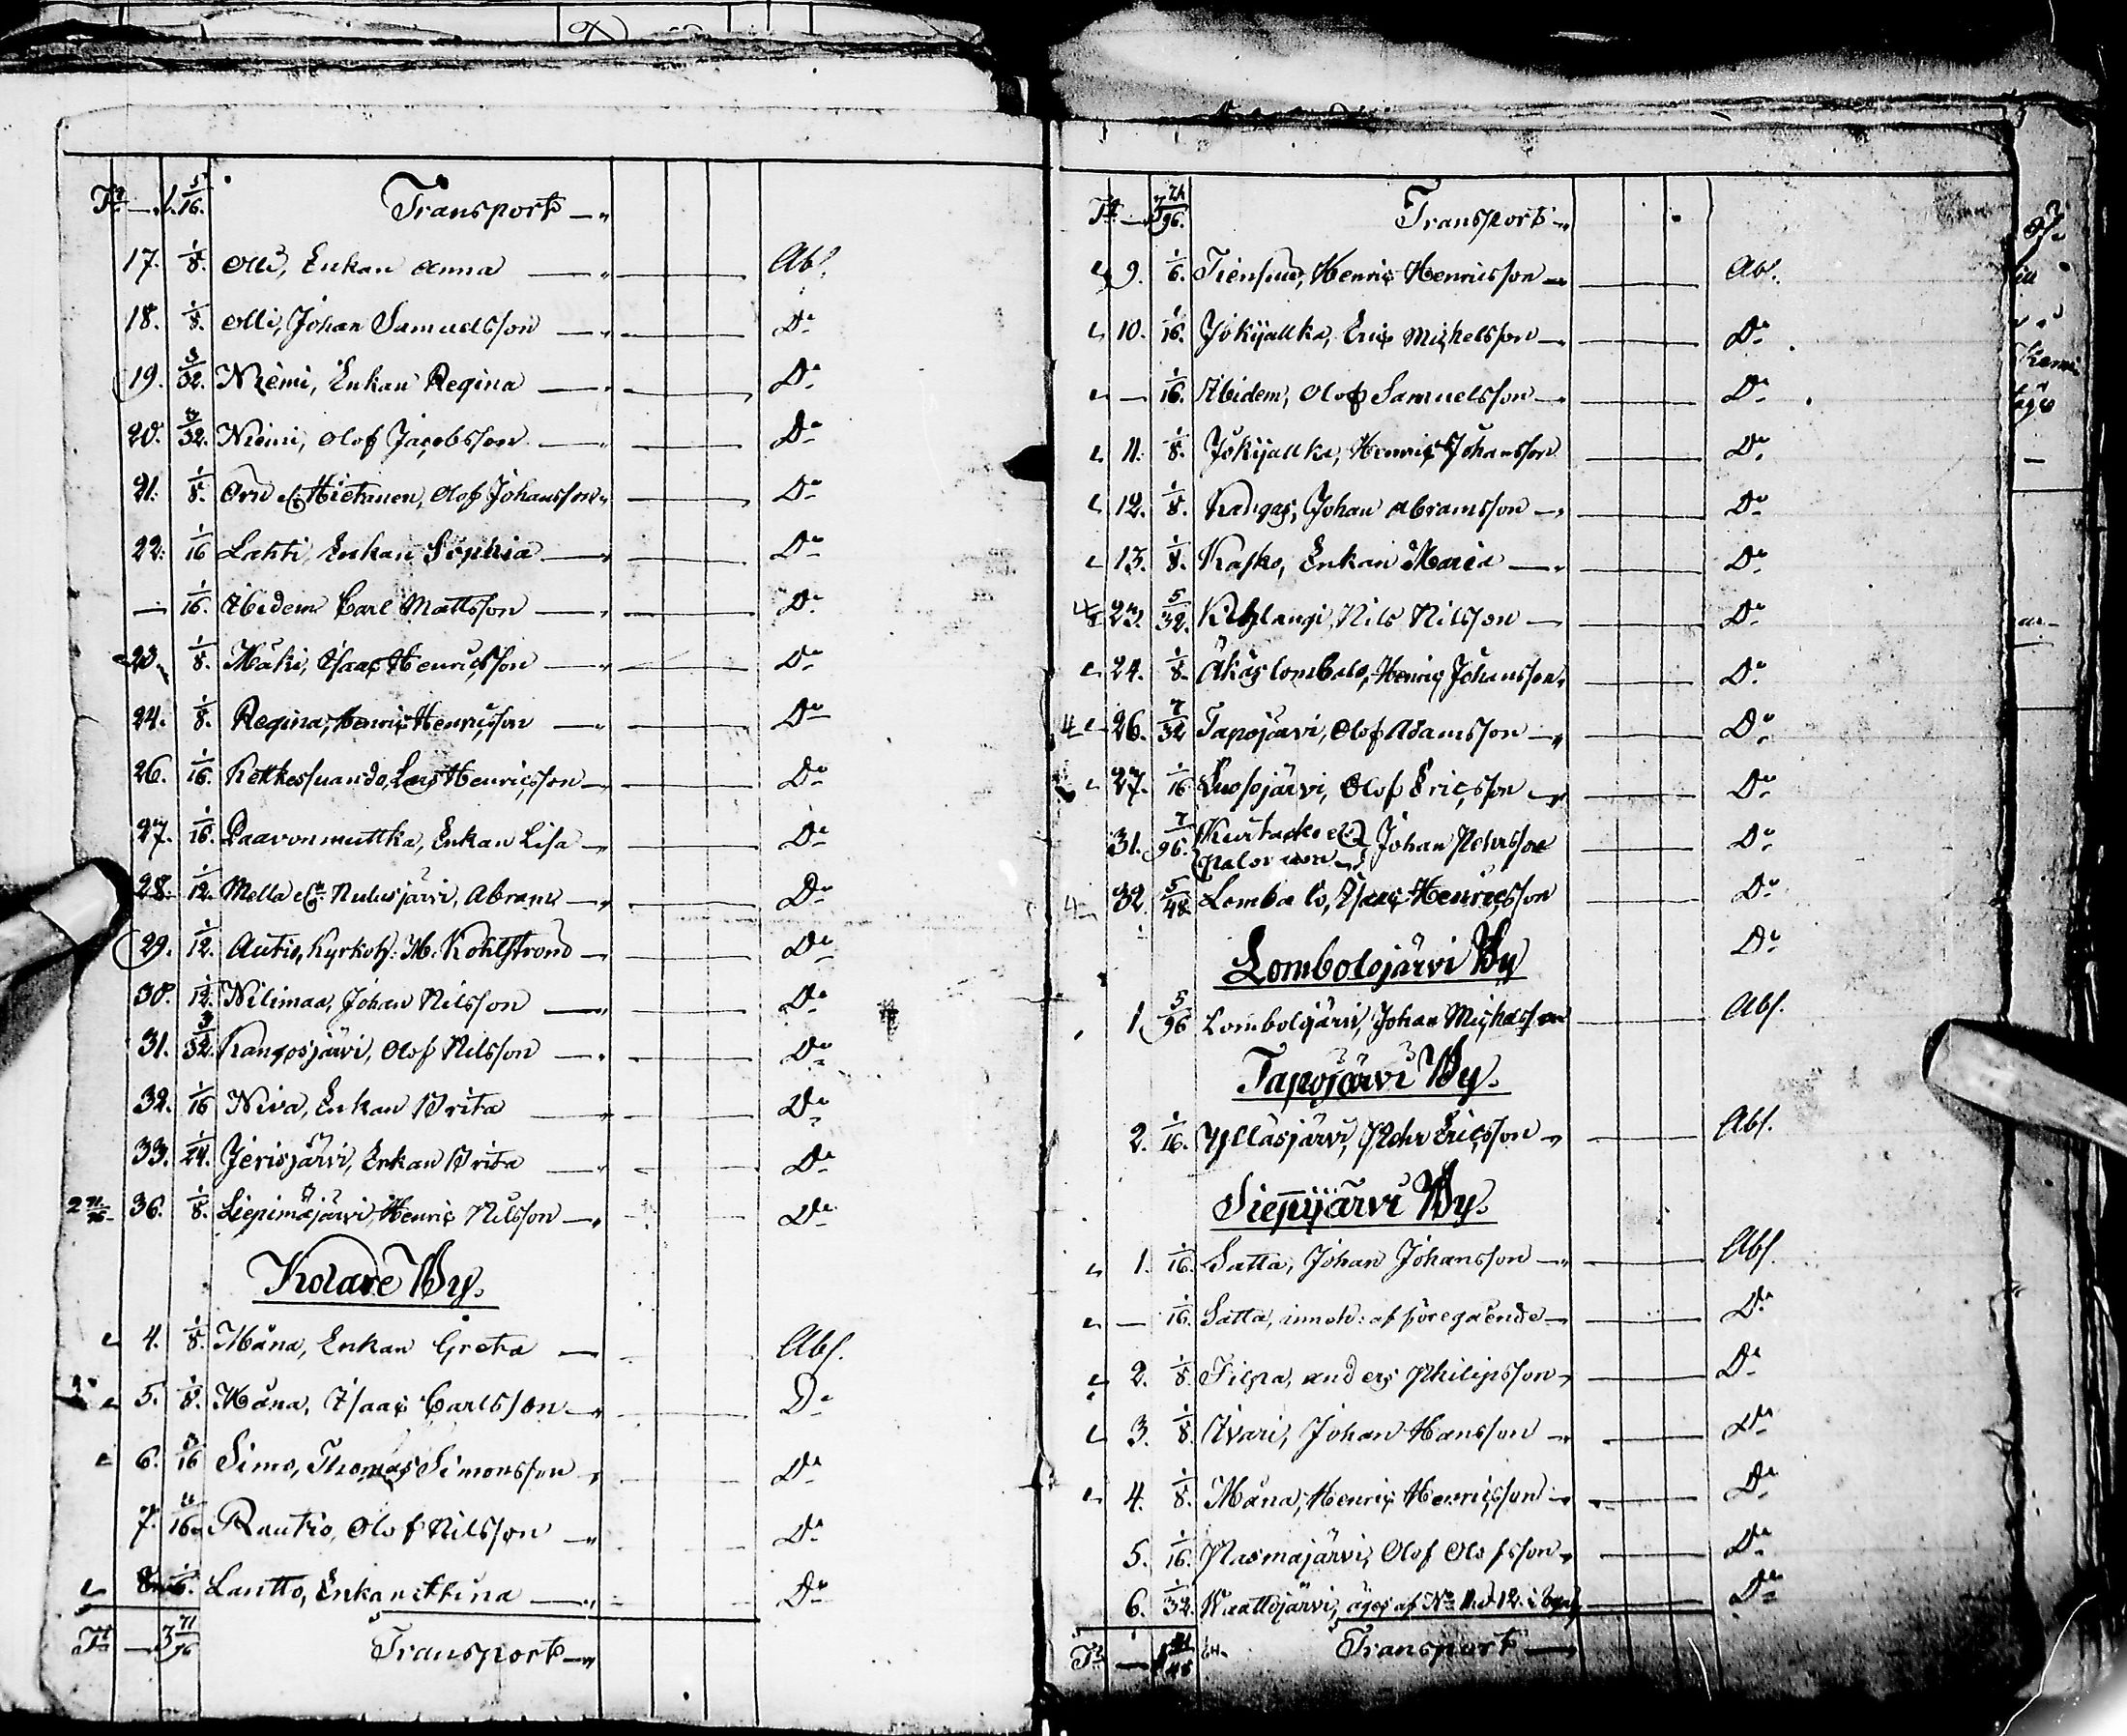 Tt — 1. 5/16. Transport —
17. 1/8. Olli, Enkan Anna — Abs.
18. 1/8. Olli, Johan Samuelsson — Do
19. 3/32. Niemi, Enkan Regina — Do
20. 3/32. Niemi, Olof Jacobsson — Do
21. 1/8. Hietanen, Olof Johansson Do
22. 1/16 Lahti, Enkan Sophia — Do
— 1/16. Ibidem Carl Mattsson — Do
23. 1/8. Mäki, Isaac Henricsson — Do
24. 1/8. Regina, Henric Henricsson — Do
26. 1/16. Kettkessuando, Lars Henricsson — Do
27. 1/16. Paavonmuttka, Enkan Lisa — Do
28. 1/12. Mella Nulusjärvi, Abram — Do
29. 1/12. Autio, Kyrkoh: M. Kohlström — Do
30. 1/12. Nilimaa, Johan Nilsson — Do
31. 3/32. Kangosjärvi, Olof Nilsson — Do
32. 1/16 Niva, Enkan Brita — Do
33. 1/24. Jerisjärvi, Enkan Brita — Do
36. 1/8. Liepimäjärvi, Henric Nilsson — Do
Kolare By.
4. 1/8. Måna, Enkan Greta — Abs.
5. 1/8. Måna, Isaac Carlsson — Do
6. 3/16 Simo, Thomas Simonsson Do
7. Rautio, Olof Nilsson — Do
Lantto, Enkan Stina — Do
Tt — 3 71/96 Transport —
Tt — Transport —
9. 1/6. Tiensuu, Henric Henricsson — Abs.
10. 1/16. Jokijallka, Eric Michelsson — Do
— 1/16. Ibidem, Olof Samuelsson — Do
11. 1/8. Jokijallka, Henric Johansson Do
12. 1/8. Kangas, Johan Abramsson — Do
13. 1/8. Kasko, Enkan Maria — Do
23. 5/32. Kihlangi, Nils Nilsson — Do
24. 1/8. Äkäslombolo, Henric Johansson Do
4 26. 7/32 Tapojärvi, Olof Adamsson — Do
27. 1/16 Luosojärvi, Olof Ericsson — Do
31. 7/96. Kurtacko Johan Pehrsson Do
Palovaara
4 32. 5/48 Lombolo, Isaac Henricsson Do
Lombolojärvi By Do
1. 5/96 Lombolojärvi, Johan Michelsson Abs.
Tapojärvi By.
2. 1/16. Ylläsjärvi, Pehr Ericsson — Abs.
Sieppijärvi By.
1. 1/16. Satta, Johan Johansson — Abs.
— 1/16. Satta, inneh: af föregående — Do
2. 1/8 Filpa, Anders Philipsson Do
3. 1/8. Ivari, Johan Hansson — Do
4. 1/8. Måna, Henric Henricsson — Do
5. 1/16. Pasmajärvi, Olof Olofsson Do
6. 1/32. Waattojärvi, äges af No 11 & 12. i Do
Tt — Transport —